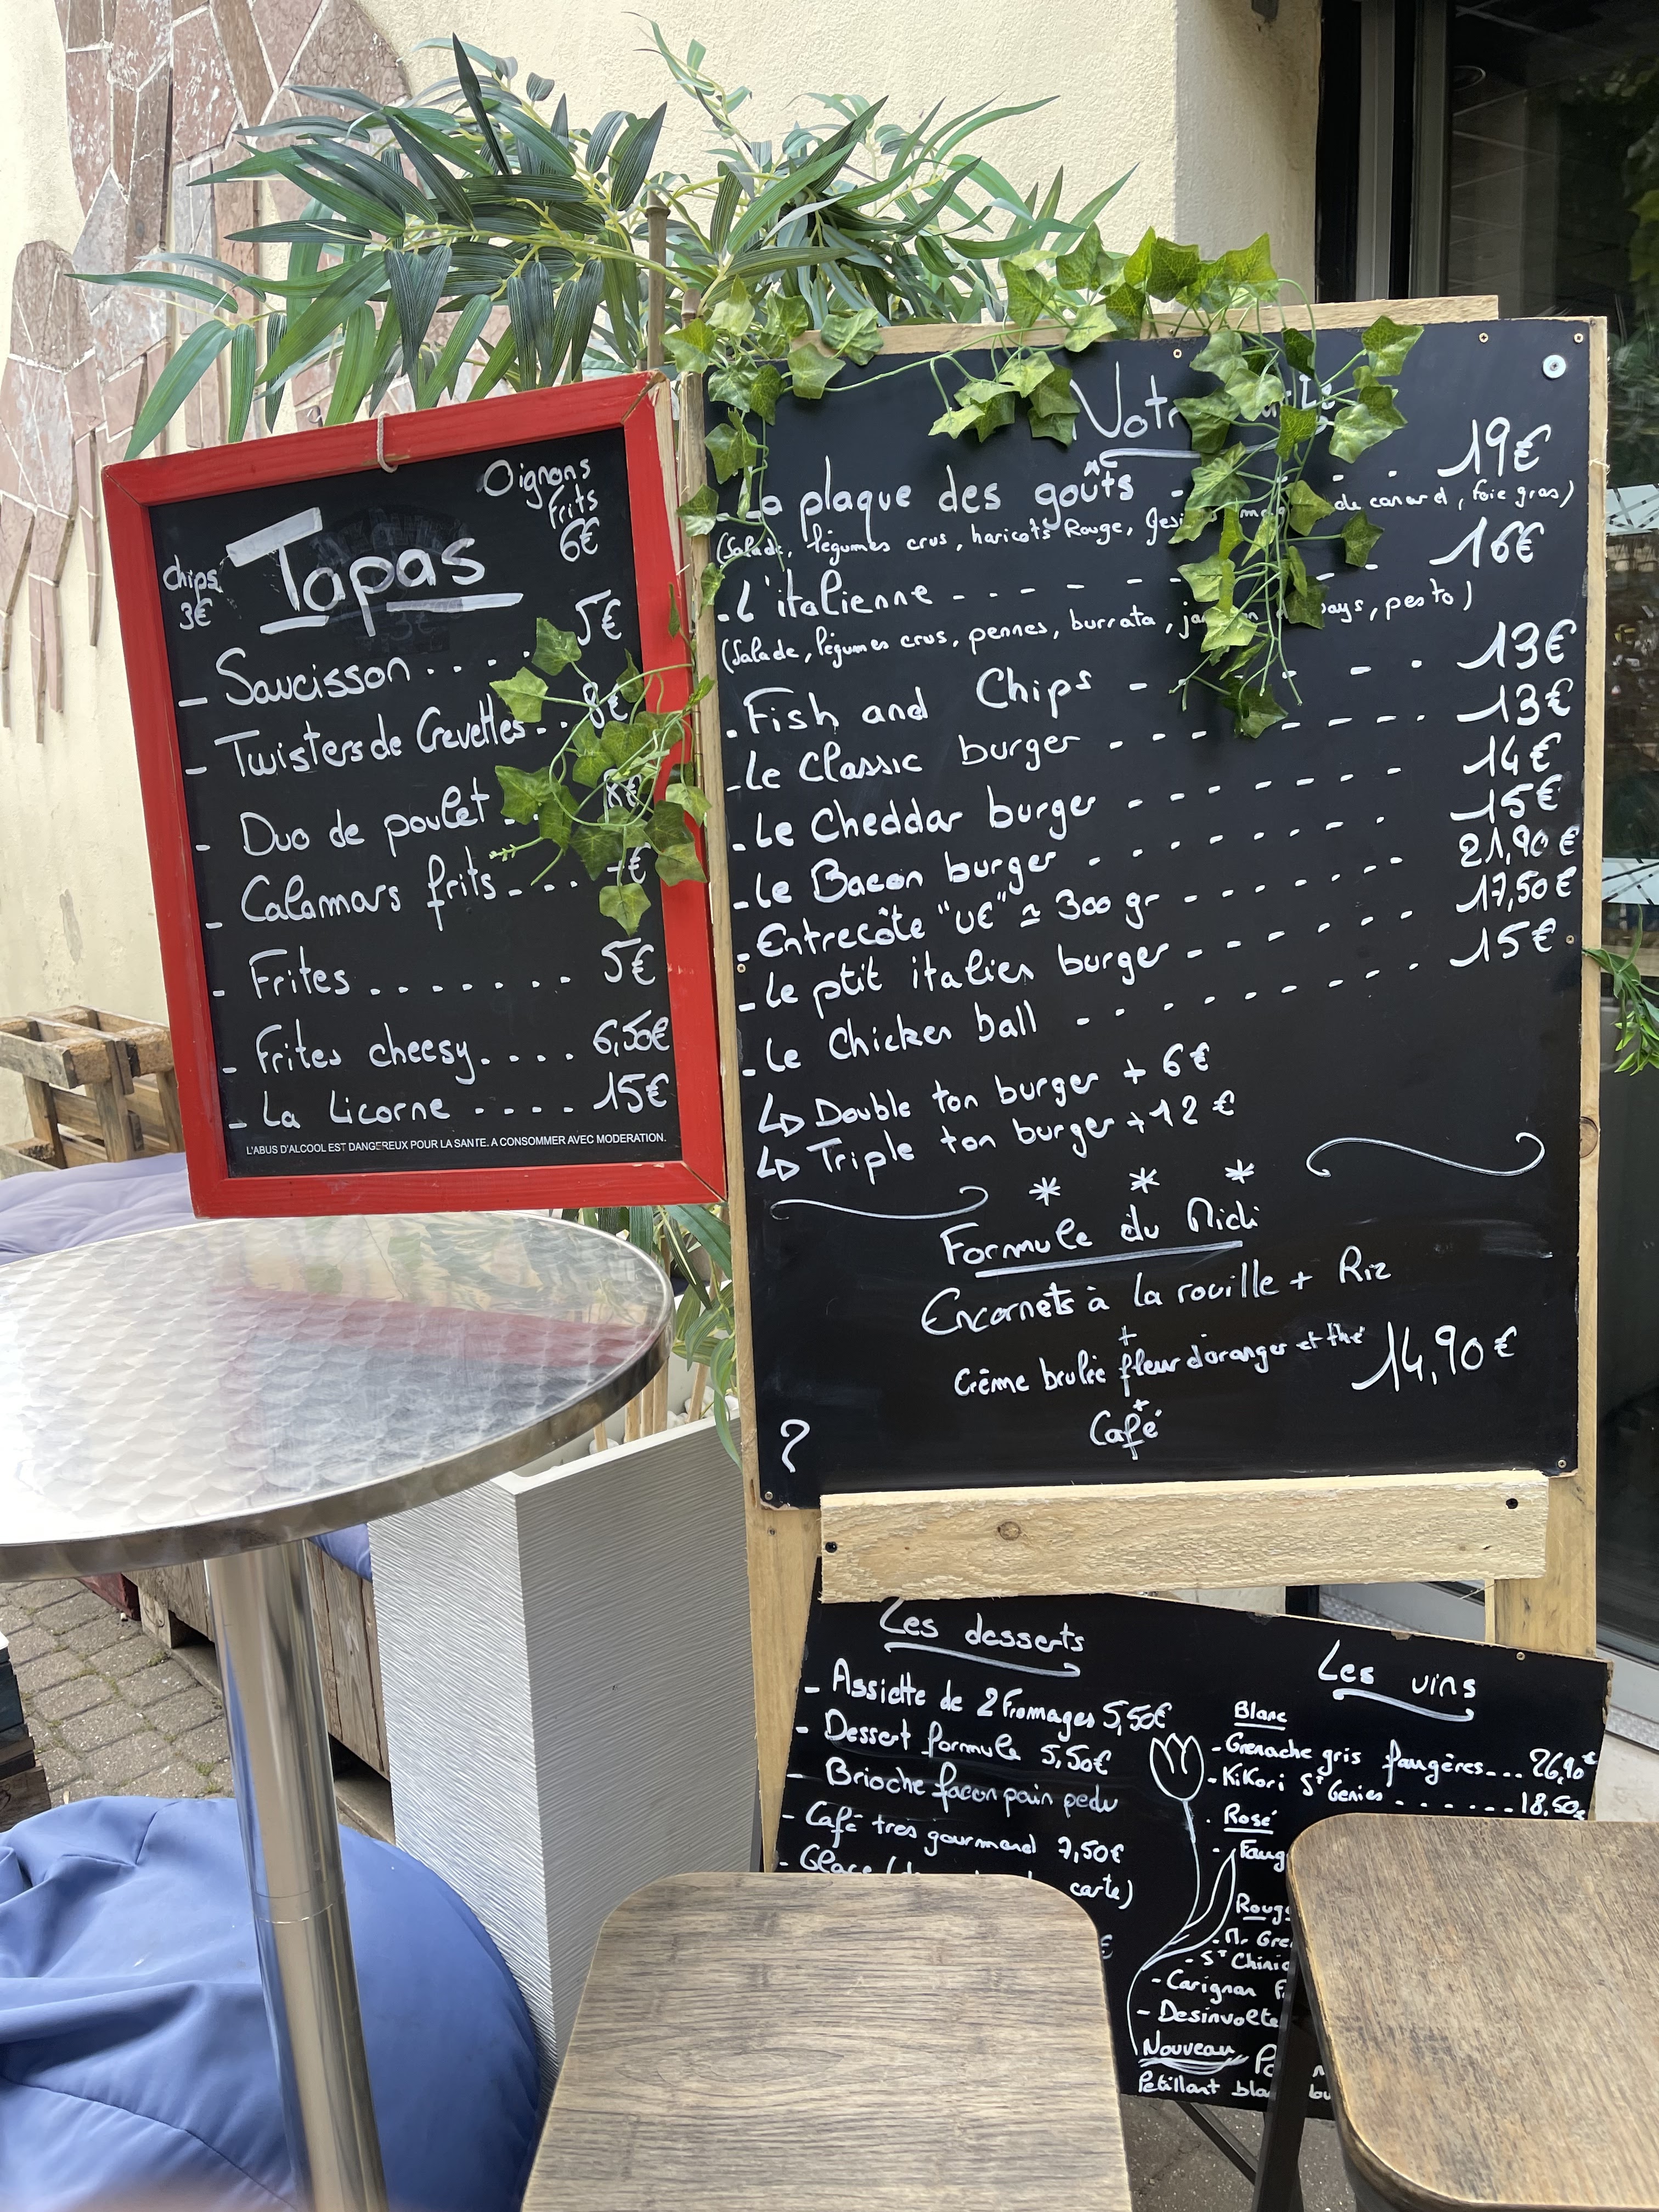 Oignons
frits
6€
chips
3€
Tapas
- Saucisson . . . . . 5€
- Twisters de Crevettes . . 8€
- Duo de poulet . . 8€
- Calamars frits - . . . €
- Frites . . . . . . . 5€
- Frites cheesy . . . . 6,50€
- La Licorne . . . . 15€
L'ABUS D'ALCOOL EST DANGEREUX POUR LA SANTE. A CONSOMMER AVEC MODERATION.
- La plaque des goûts - - - 19€
(Salade, légumes crus, haricots Rouge, de canard, foie gras)
- L'italienne - - - - - - - 16€
(Salade, légumes crus, pennes, burrata, pesto)
- Fish and Chips - - - - 13€
- Le Classic burger - - - - - - - 13€
- Le Cheddar burger - - - - - - 14€
- Le Bacon burger - - - - - - - 15€
- Entrecôte "UE" ≃ 300 gr - - - - - - 21,90€
- Le ptit italien burger - - - - - - 17,50€
- Le Chicken ball - - - - - - - - 15€
↳ Double ton burger + 6€
↳ Triple ton burger + 12€
* * *
Formule du Midi
Encornets à la rouille + Riz
+
Crème brulée fleur d'oranger et thé 14,90€
+
Café
?
Les desserts
- Assiette de 2 Fromages 5,50€
- Dessert formule 5,50€
- Brioche facon pain pedu
- Café très gourmand 7,50€
- Glace ( carte)
€
Les vins
Blanc
- Grenache gris faugères . . . 26,90€
- KiKori St Genies . . . . . . . 18,50€
Rosé
-
Rouge
- Mr
- St
- Carignan
- Desinvolte
Nouveau
Petillant